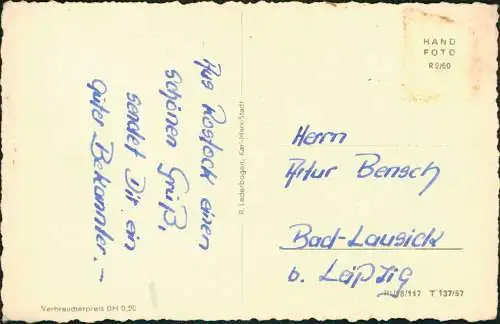 Aus Rostock einen
schönen Gruß,
sendet Dir ein
guter Bekannter.–
R. Lederbogen, Karl-Marx-Stadt
HAND
FOTO
R 9/60
Herrn
Artur Bensch
Bad-Lausick
b. Leipzig
T 137/57
Verbraucherpreis DM 0,20